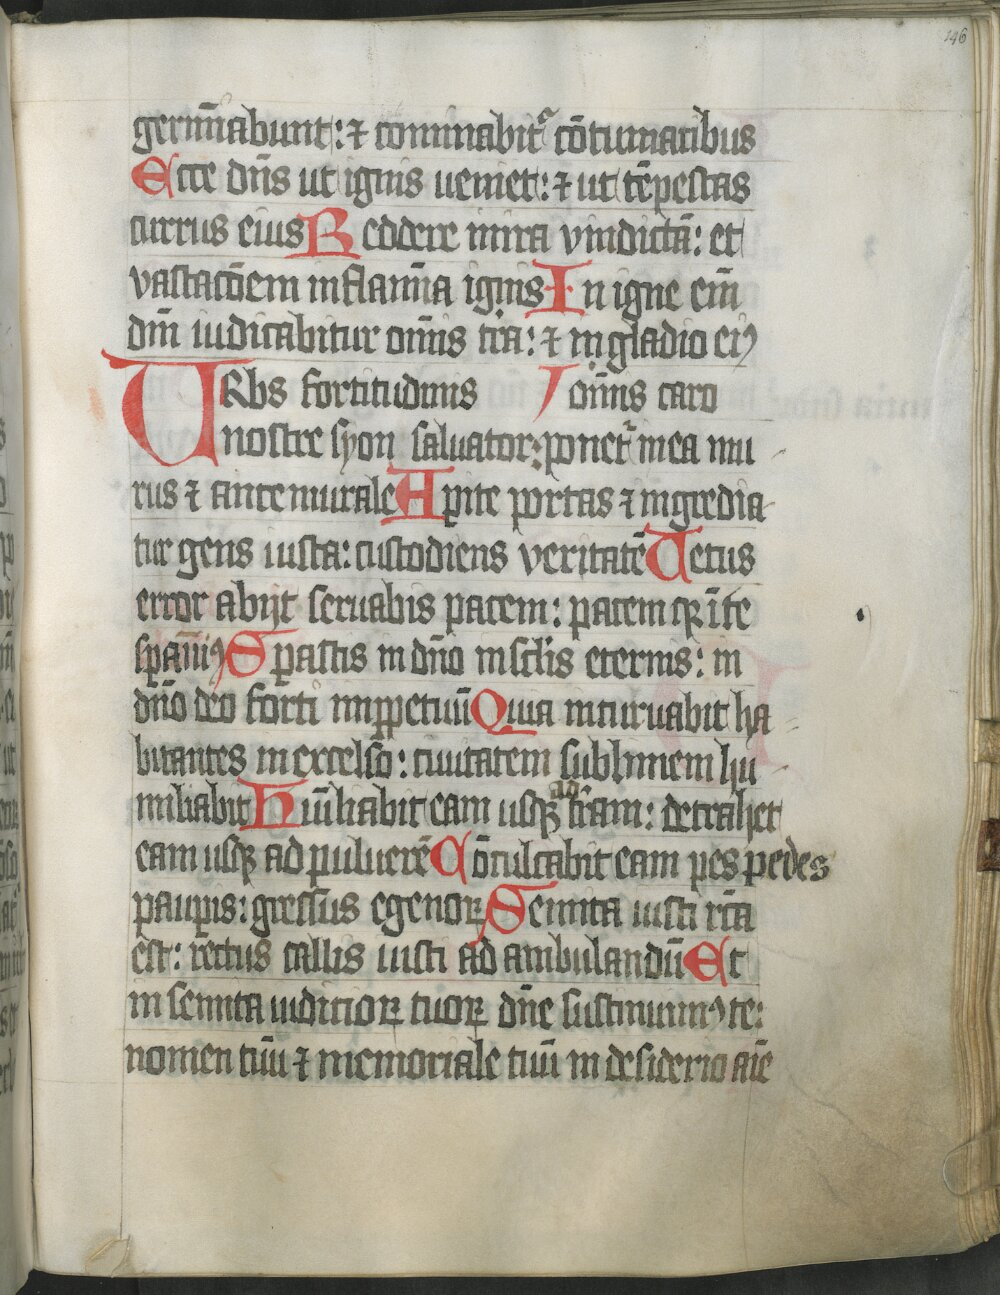 146
germīabunt: ⁊ cominabit᷑ cōtumacibus
Ecce dn̄s ut ignis ueniet: ⁊ ut tēpestas
currus eius Reddere in ira vindictā: et
vastacōem in flamma ignis In igne eīm
dn̄i iudicabitur omīs t̄ra: ⁊ in gladio eiꝰ
URbs fortitudinis omīs caro
nostre syon saluator: ponet᷑ in ea mu
rus ⁊ ante murale Apite portas ⁊ ingredia
tur gens iusta: custodiens veritatē Uetus
error abijt seruabis pacem: pacem qꝛ ī te
spauimꝰ Spastis in dn̄o in sc̄lis eternis: in
dn̄o deo forti in ꝑpetuū Quia incuruabit ha
bitantes in excelso: ciuitatem sublimem hu
miliabit Humīliabit eam usqꝫ ad t̄ram: detrahet
eam usqꝫ ad puluerē Cōculcabit eam pes pedes
paupis: gressus egenoꝝ Semita iusti rc̄a
est: rectus callis iusti ad ambulandū Et
in semita iudicioꝝ tuoꝝ dn̄e sustinuimꝰ te:
nomen tuū ⁊ memoriale tuū in desiderio aīe